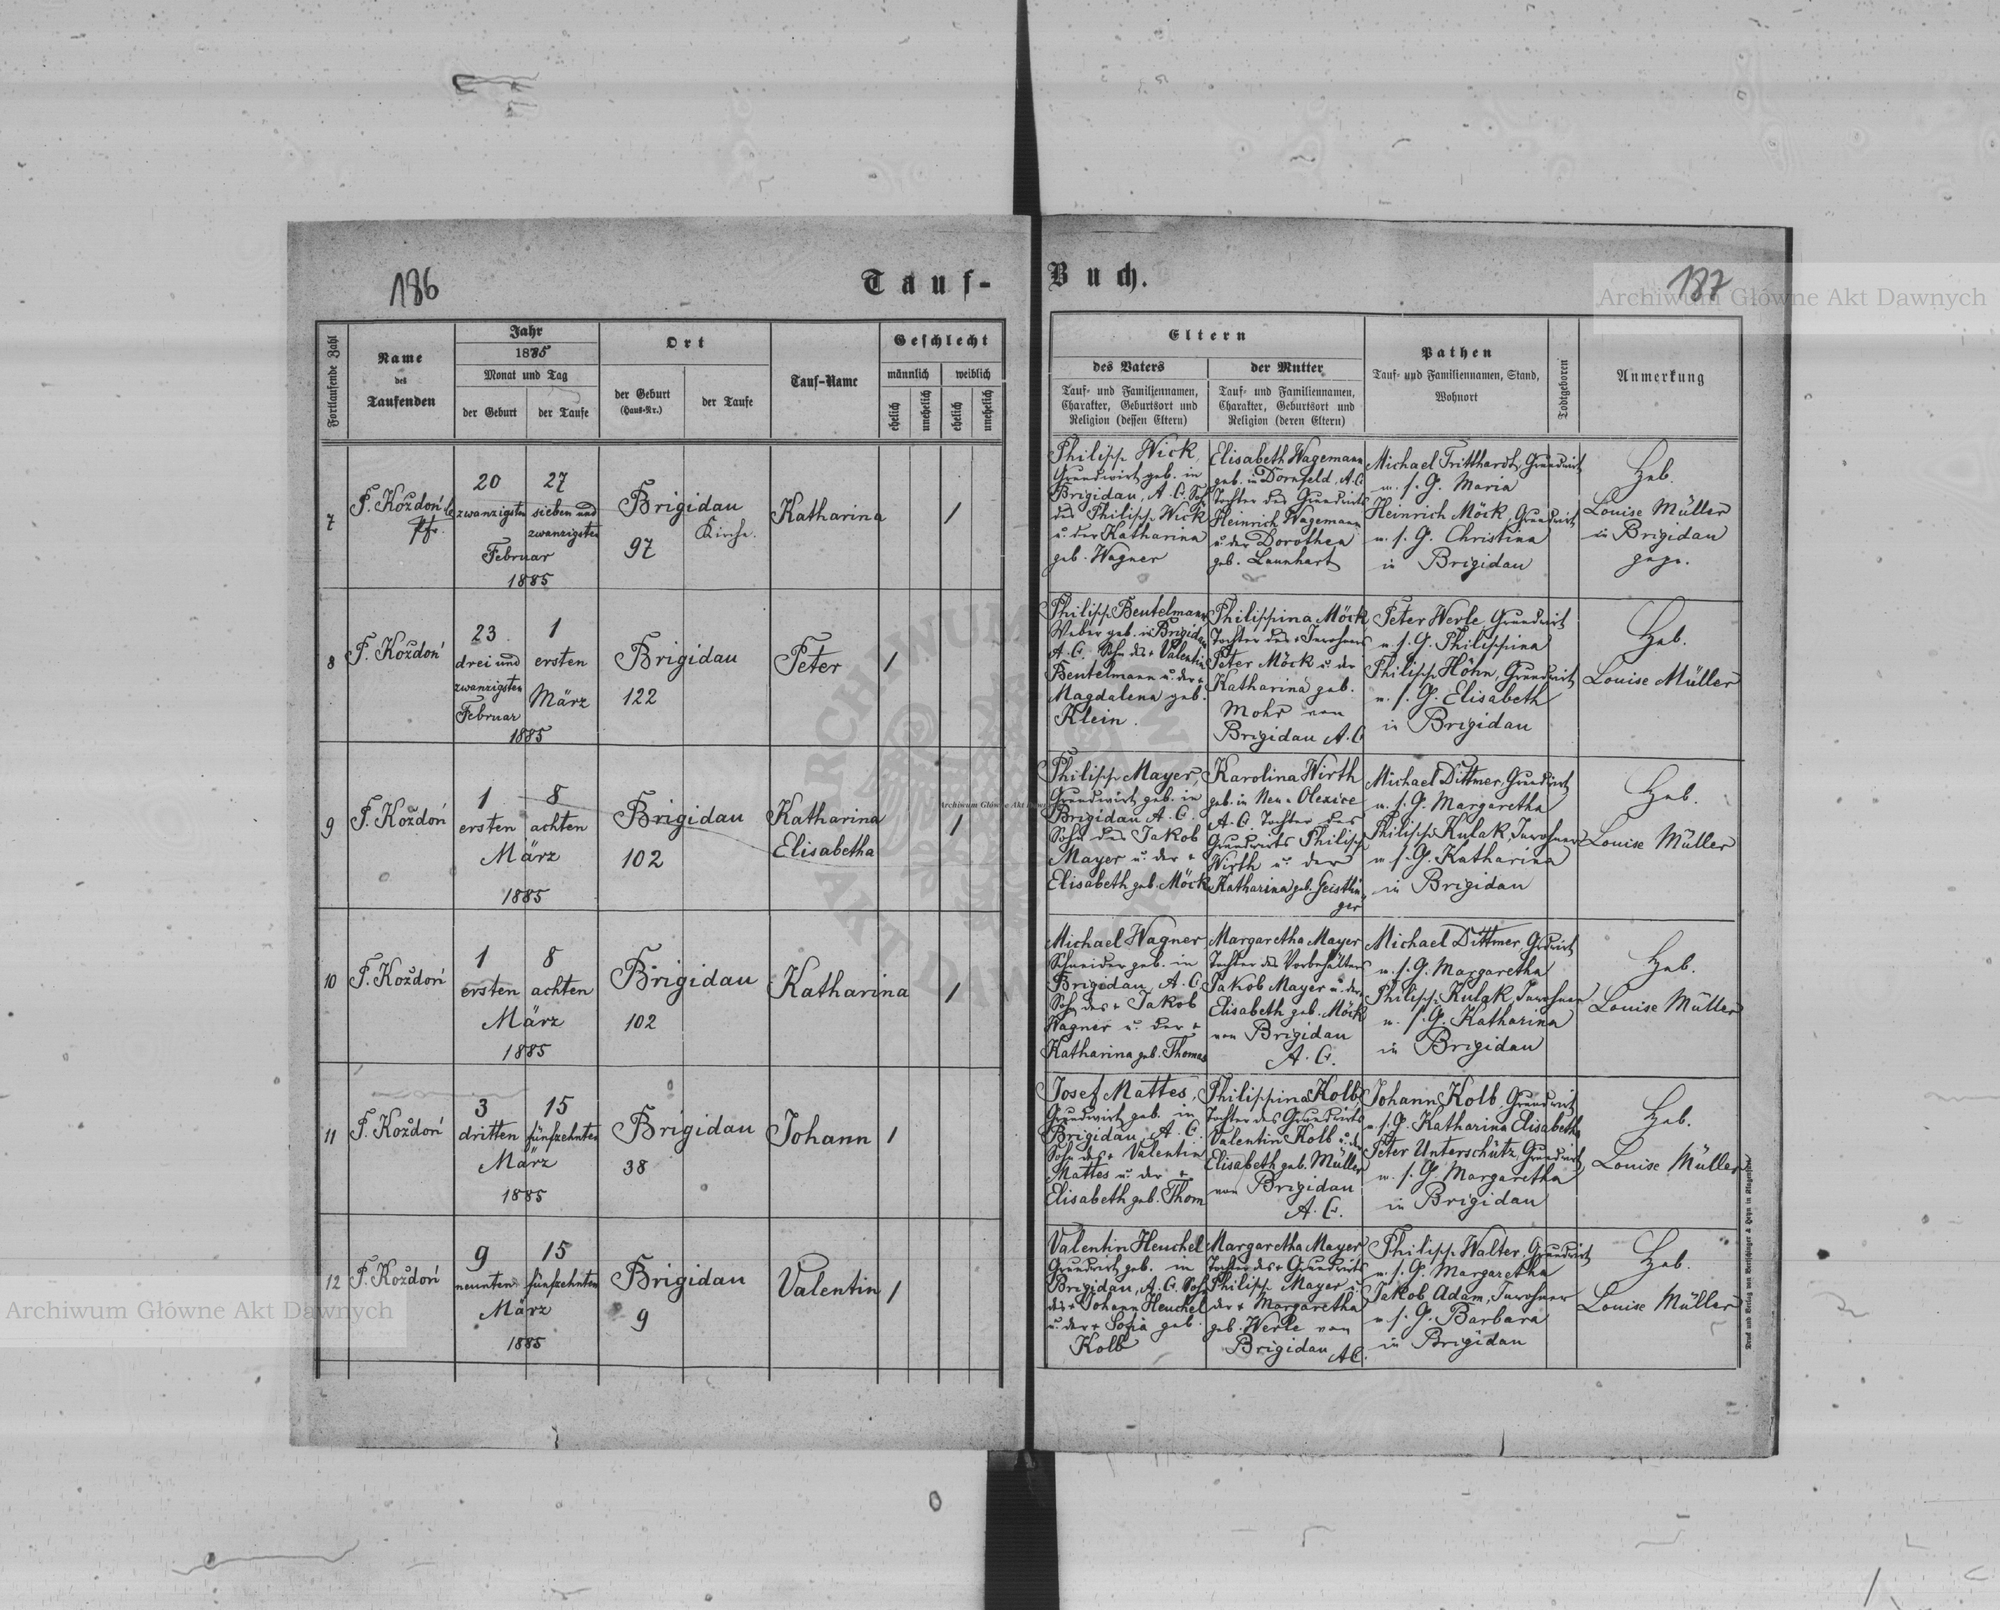 186
Tauf-
Buch.
187
Archiwum Główne Akt Dawnych
Fortlaufende Zahl
Name
des
Taufenden
Jahr
1885
Monat und Tag
der Geburt
der Taufe
Ort
der Geburt
(Haus-Nr.)
der Taufe
Tauf-Name
Geschlecht
männlich
weiblich
ehelich
unehelich
ehelich
unehelich
Eltern
des Vaters
Tauf- und Familiennamen,
Charakter, Geburtsort und
Religion (dessen Eltern)
der Mutter
Tauf- und Familiennamen,
Charakter, Geburtsort und
Religion (deren Eltern)
Pathen
Tauf- und Familiennamen, Stand,
Wohnort
Todtgeboren
Anmerkung
7
F. Koždoń
Pf.
20
zwanzigsten
27
sieben und
zwanzigsten
Februar
1885
Brigidau
97
Kirche.
Katharina
/
Philipp Wick,
Grundwirt geb. in
Brigidau, A. C. Sohn
des Philipp Wick
u. der Katharina
geb. Wagner
Elisabeth Wagemann
geb. in Dornfeld, A.C.
Tochter des Grundwirts
Heinrich Wagemann
u. der Dorothea
geb. Launhart
Michael Tritthardt, Grundwirt
u. s. G. Maria
Heinrich Möck, Grundwirt
u. s. G. Christina
in Brigidau
Heb.
Louise Müller
in Brigidau
gepr.
8
F. Koždoń
23
drei und
zwanzigsten
Februar
1
ersten
März
1885
Brigidau
122
Peter
/
Philipp Beutelmann
Weber geb. in Brigidau
A. C. Sohn des + Valentin
Beutelmann u. der +
Magdalena geb.
Klein.
Philippina Möck
Tochter des + Inwohners
Peter Möck u. der
Katharina geb.
Mohr von
Brigidau A. C.
Peter Werle, Grundwirt
u. s. G. Philippina
Philipp Höhn, Grundwirt
u. s. G. Elisabeth
in Brigidau
Heb.
Louise Müller
9
F. Koždoń
1
ersten
8
achten
März
1885
Brigidau
102
Katharina
Elisabetha
/
Philipp Mayer,
Grundwirt geb. in
Brigidau A. C.
Sohn des Jakob
Mayer u. der +
Elisabeth geb. Möck
Karolina Wirth
geb. in Neu-Olexice
A. C. Tochter des
Grundwirts Philipp
Wirth u. der
Katharina geb. Geistlin-
ger
Michael Dittmer, Grundwirt
u. s. G. Margaretha
Philipp Kulak, Inwohner
u. s. G. Katharina
in Brigidau
Heb.
Louise Müller
10
F. Koždoń
1
ersten
8
achten
März
1885
Brigidau
102
Katharina
/
Michael Wagner,
Schneider geb. in
Brigidau, A. C.
Sohn des + Jakob
Wagner u. der +
Katharina geb. Thomas
Margaretha Mayer
Tochter des Vorbehälters
Jakob Mayer u. der
Elisabeth geb. Möck
von Brigidau
A. C.
Michael Dittmer, Grdwirt
u. s. G. Margaretha
Philipp Kulak, Inwohner
u. s. G. Katharina
in Brigidau
Heb.
Louise Müller
11
F. Koždoń
3
dritten
15
fünfzehnten
März
1885
Brigidau
38
Johann
/
Josef Mattes,
Grundwirt geb. in
Brigidau, A. C.
Sohn des + Valentin
Mattes u. der +
Elisabeth geb. Thom
Philippina Kolb
Tochter des Grundwirts
Valentin Kolb u. der
Elisabeth geb. Müller
von Brigidau
A. C.
Johann Kolb, Grundwirt
u. s. G. Katharina Elisabetha
Peter Unterschütz, Grundwirt
u. s. G. Margaretha
in Brigidau
Heb.
Louise Müller
12
F. Koždoń
9
neunten
15
fünfzehnten
März
1885
Brigidau
9
Valentin
/
Valentin Heuchel
Grundwirt geb. in
Brigidau, A. C. Sohn
des + Johann Heuchel
u. der + Sofia geb.
Kolb
Margaretha Mayer
Tochter des + Grundwirts
Philipp Mayer u.
der + Margaretha
geb. Werle von
Brigidau AC.
Philipp Walter, Grundwirt
u. s. G. Margaretha
Jakob Adam, Inwohner
u. s. G. Barbara
in Brigidau
Heb.
Louise Müller
Archiwum Główne Akt Dawnych